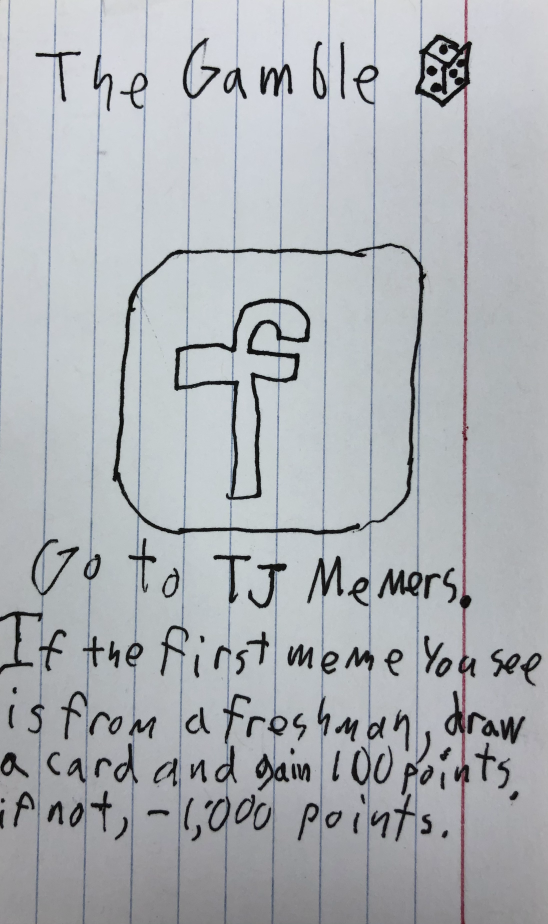 The Gamble
f
Go to TJ Memers.
If the first meme you see
is from a freshman, draw
a card and gain 100 points.
if not, -1,000 points.